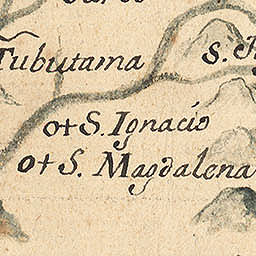 Tubutama
S.
o+S. Ignacio
o+S. Magdalena